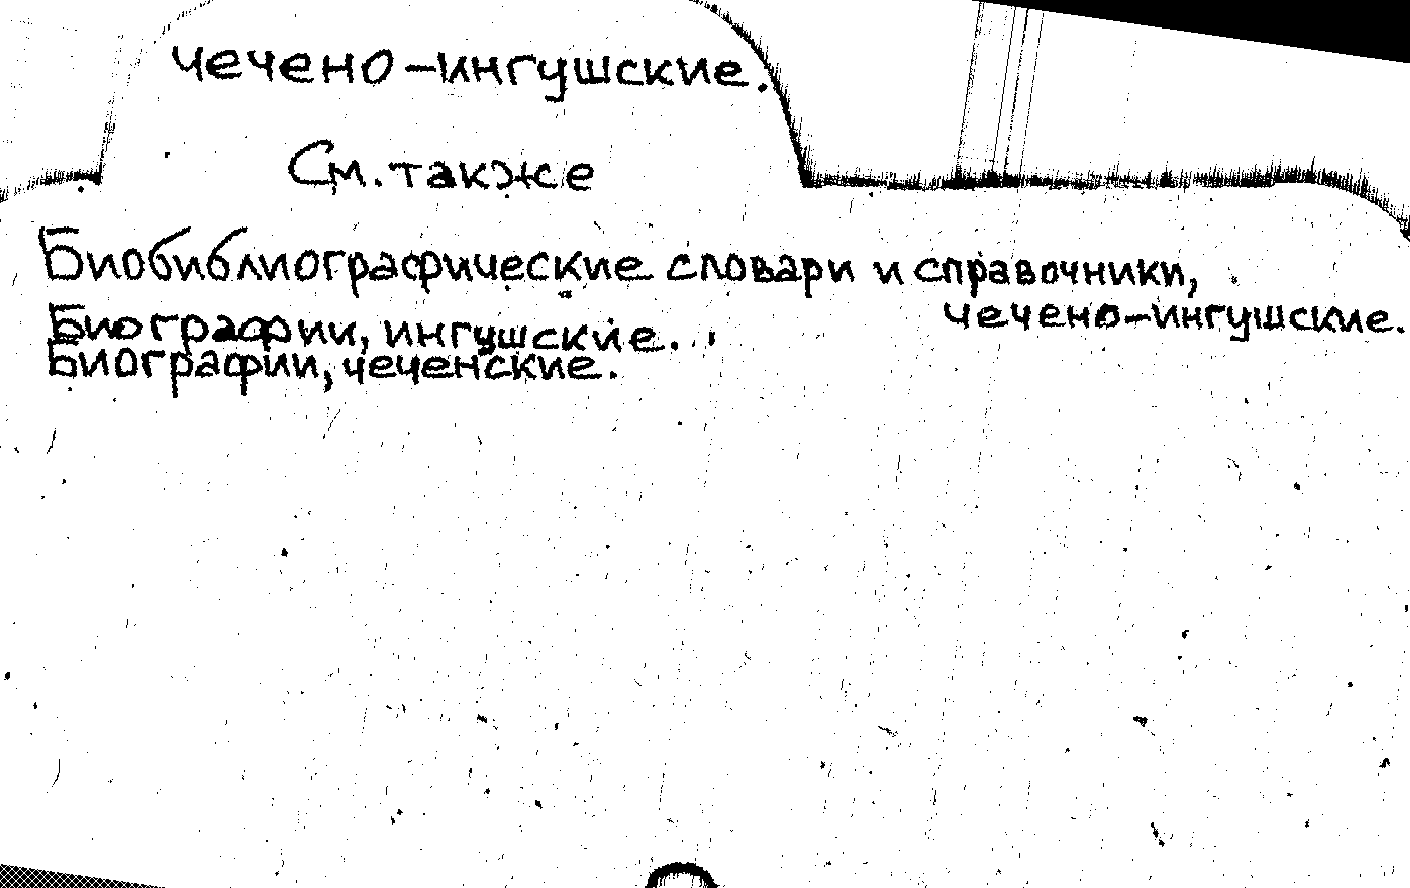 чечено-ингушские.
См. также
Биобиблиографические словари и справочники,
чечено-ингушские.
Биографии, ингушские.
Биографии, чеченские.